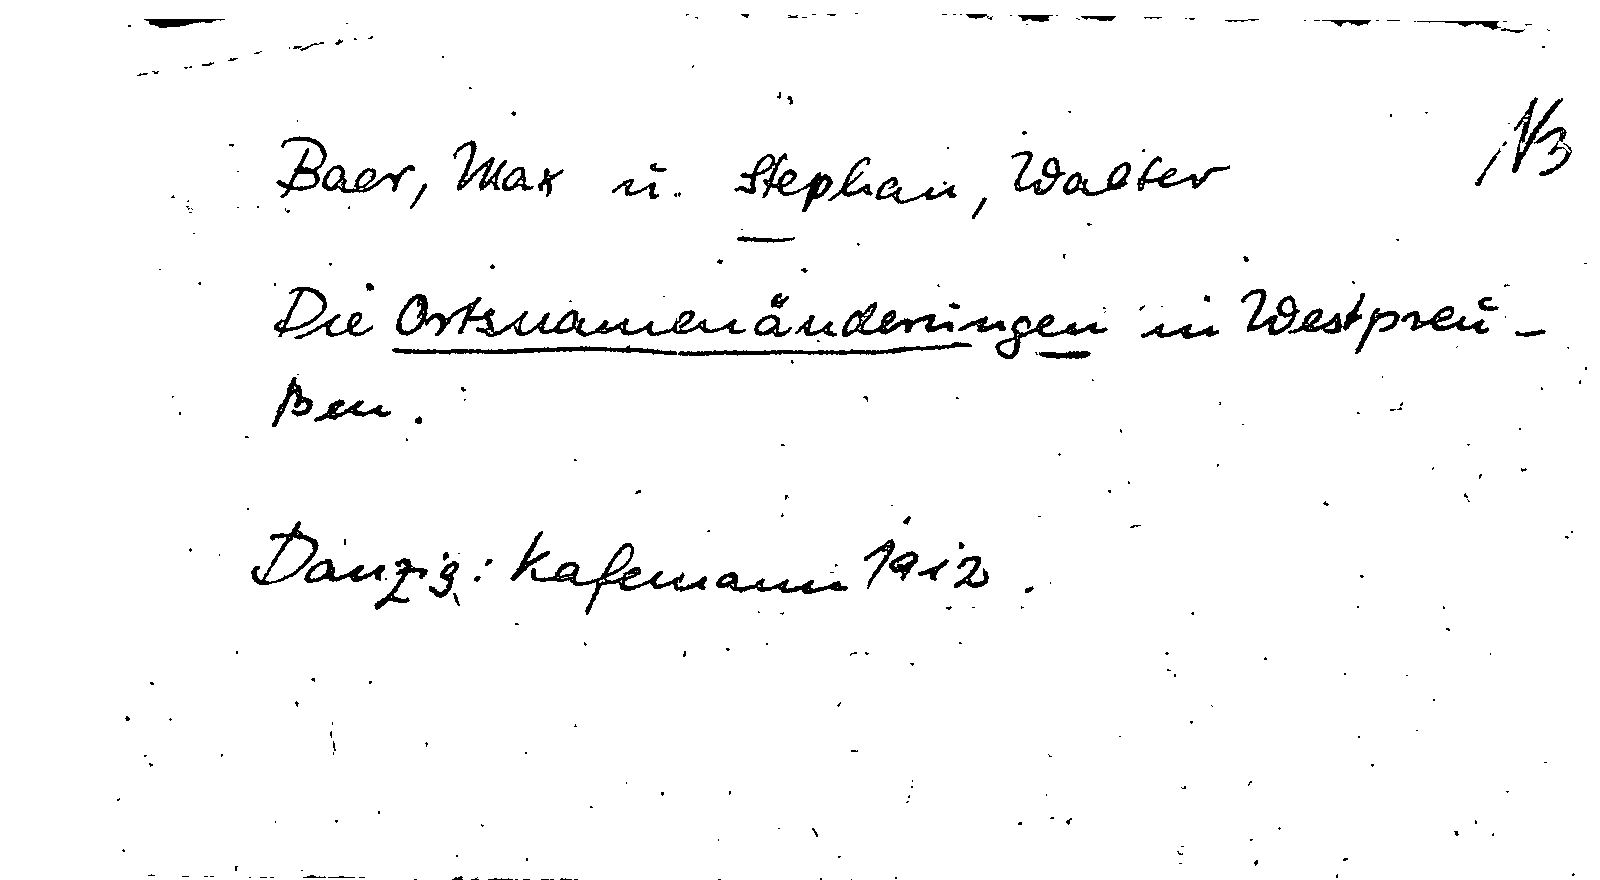 NB
Baer, Max u. Stephan, Walter
Die Ortsnamenänderungen in Westpreu-
ßen.
Danzig: Kafemann 1912.